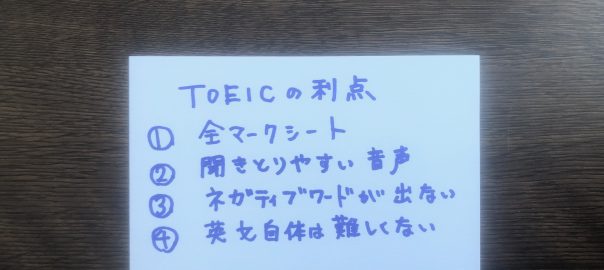 TOEICの利点
① 全マークシート
② 聞きとりやすい音声
③ ネガティブワードが出ない
④ 英文自体は難しくない